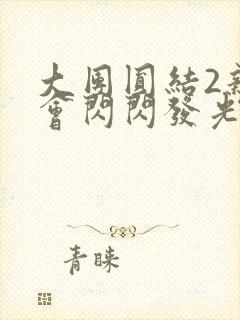 大團圓結2新
會閃閃發光
青睞